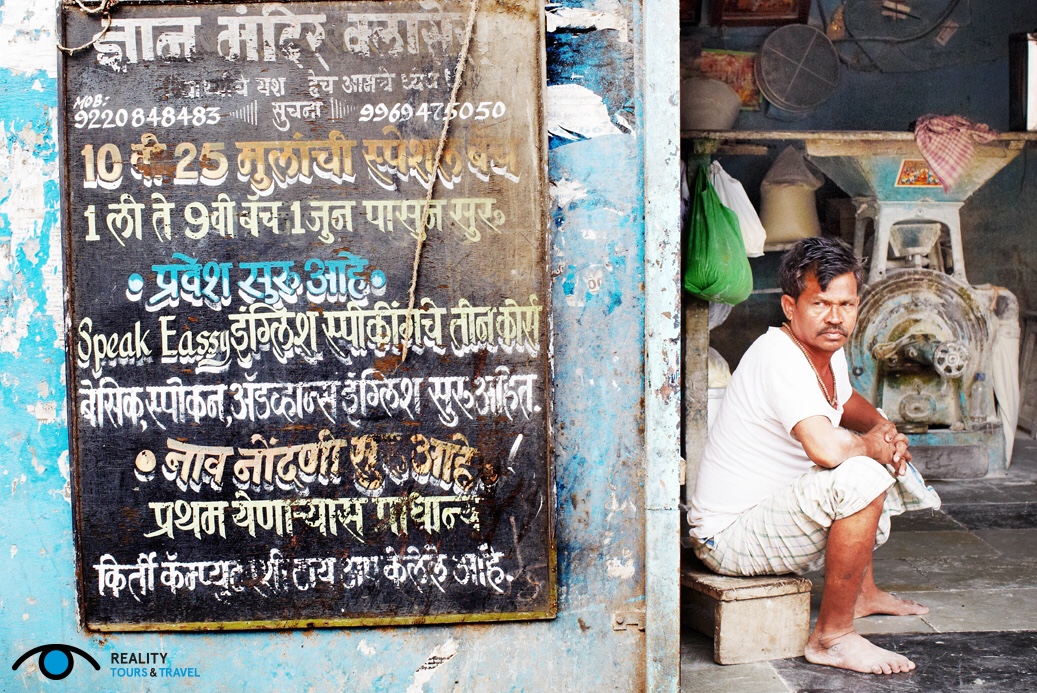 ज्ञान मंदिर क्लासेस
यश हेच आमचे ध्येय
MOB:
9220848483 सुचना 9969475050
10 वी 25 मुलांची स्पेशल बॅच
1 ली ते 9वी बॅच 1 जुन पासुन सुरु
• प्रवेश सुरु आहे •
Speak Eassy इंग्लिश स्पीकींगचे तीन कोर्स
बेसिक, स्पोकन, अॅडव्हान्स इंग्लिश सुरु आहेत.
• नाव नोंदणी सुरु आहे
प्रथम येणाऱ्यास प्राधान्य
किर्ती केलेले आहे.
REALITY
TOURS & TRAVEL